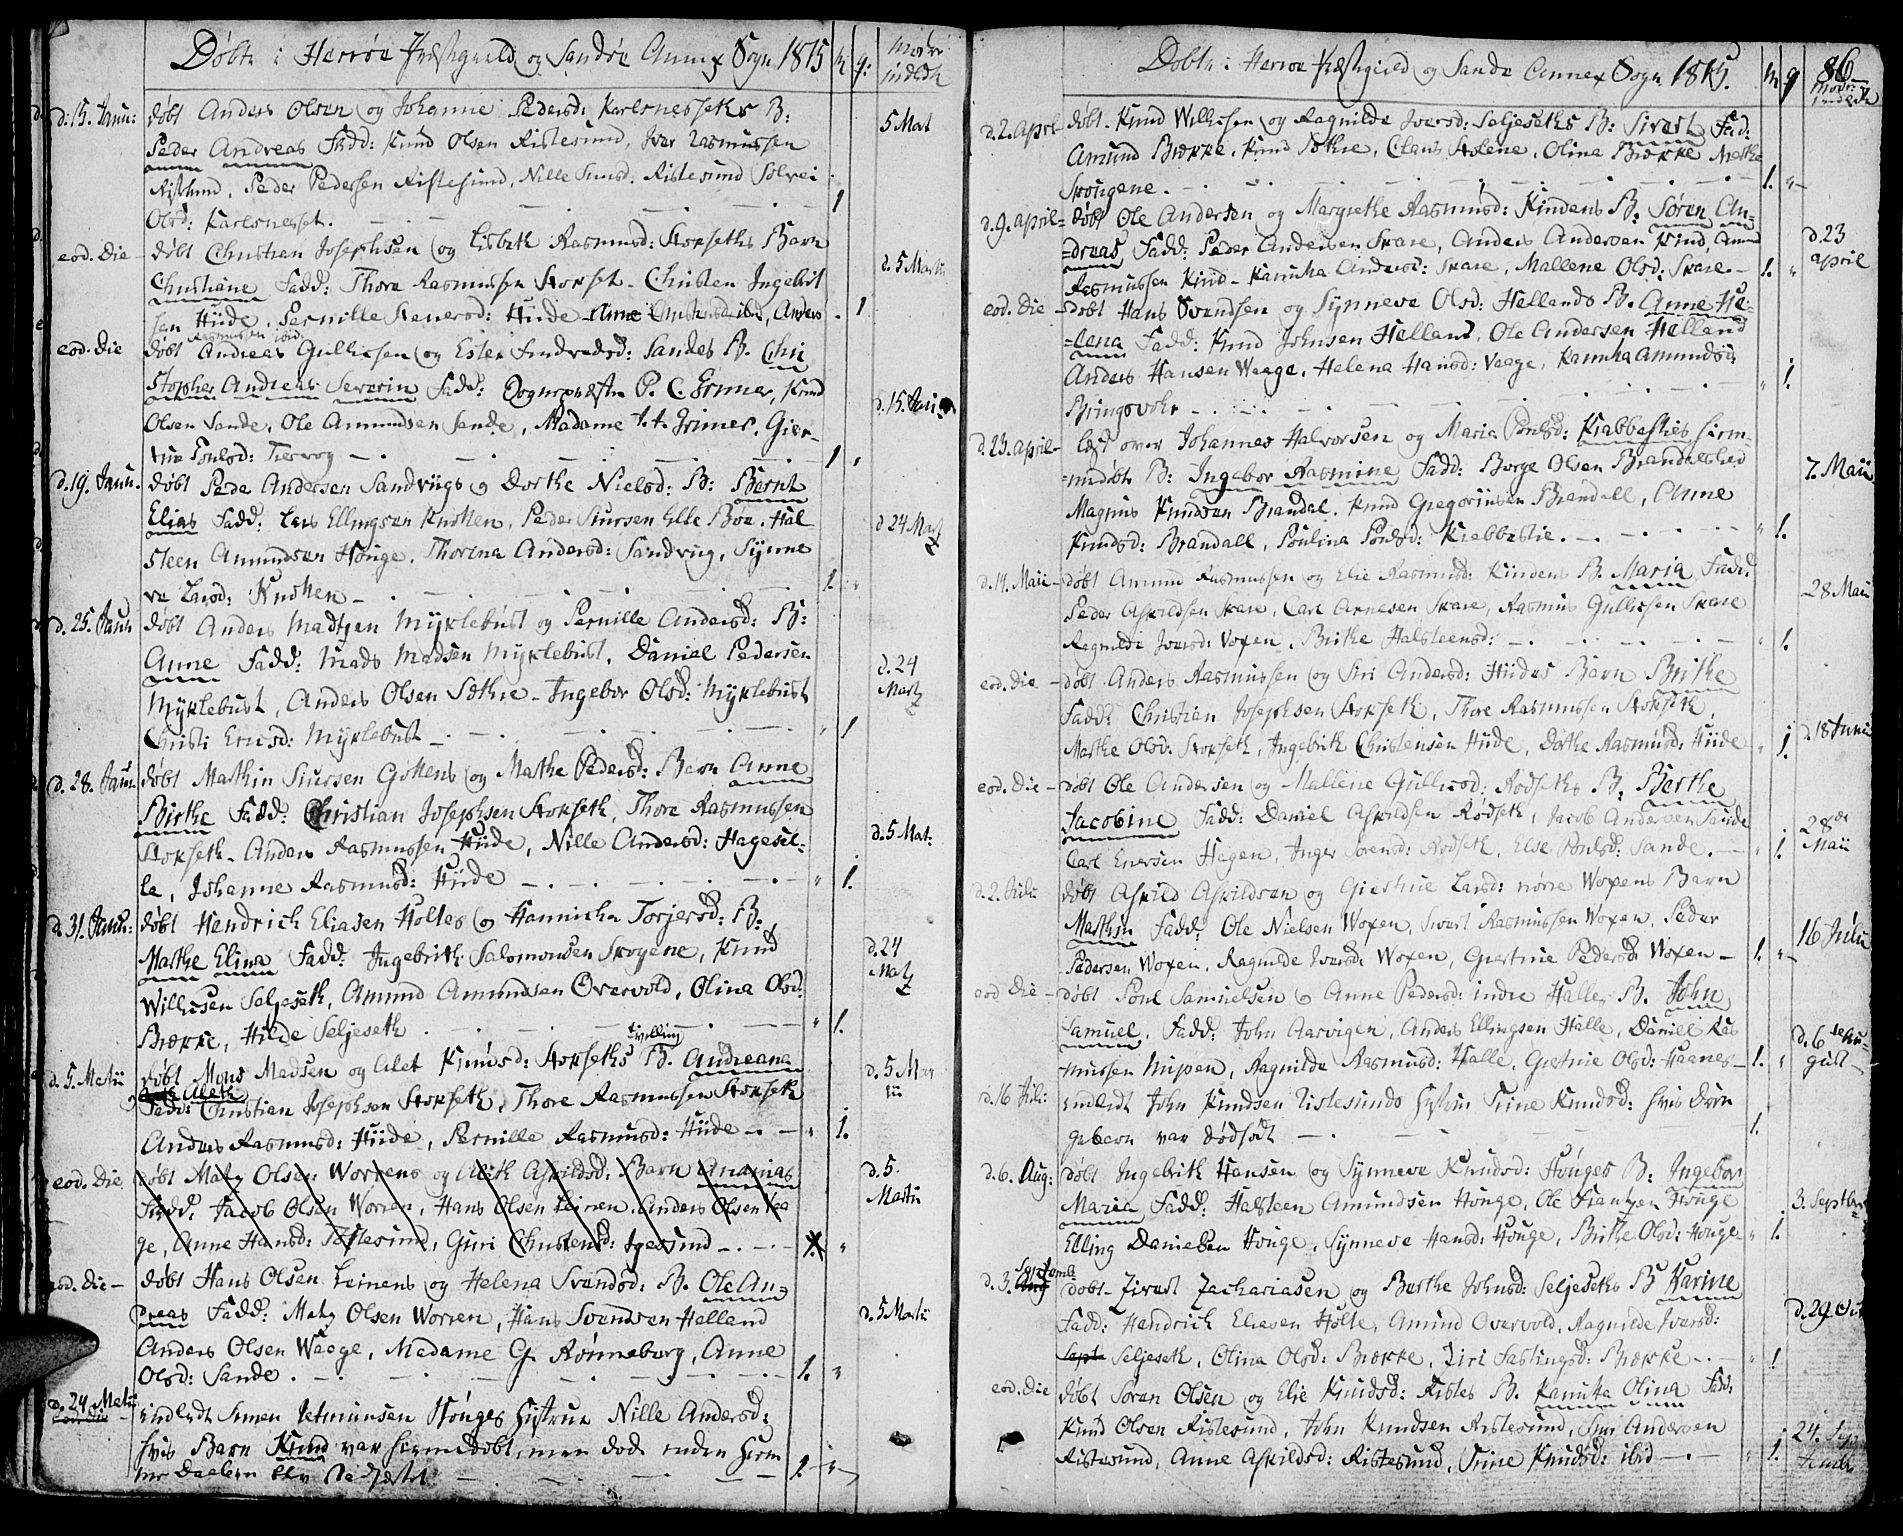 Døbte i Herrøe Præstegield og Sandøe Annex Sogn 1815 m q: Moder indledt
d: 15. Janu: døbt Anders Olsen og Johanne Pedersd: Karlsnessets B: 5 Mart
Peder Andreas Fadd: Knud Olsen Ristesund, Iver Rasmussen
Ristesund, Peder Pedersen Ristesund, Nille Ristesund Solvei
Olsd: Karlsnesset. 1
eod. Die døbt Christian Josephsen og Lisbeth Rasmusd: Storseths Barn d. 5 Martii
Christiane Fadd: Thore Rasmussen Storset - Christen Ingebrit
sen Hiide, Pernille Stenersd: Hiide Anne Christensd ibid, Anders 1
Rasmussen ibid.
eod. Die døbt Andreas Gullicsen og Ester Sandes B. Chri
stopher Andreas Severin Fadd: Sognepræsten P. C. Grimer, Knud d. 15. Janu
Olsen Sande, Ole Amundsen Sande, Madame Grimer, Gier-
true Poulsd: Tiervog 1
d. 19. Janu. døbt Peder Andersen Sandviigs og Dorthe Nielsd: B: Bernt
Elias Fadd: Lars Ellingsen Knotten, Peder Siursen Elle Bøe, Hal d 24 Martz
steen Amundsen Houge, Thorena Andersd: Sandviig, Synne
ve Larsd: Knotten 1.
d. 25. Janu døbt Anders Madtzen Myklebust og Pernille Andersd: B:
Anne Fadd: Mads Madsen Myklebust, Daniel Pedersen d. 24
Myklebust, Anders Olsen Sæthre - Ingebor Olsd: Myklebust Martz
Christi Ericsd: Myklebust 1
d. 28. Janu. døbt Mathin Siursen Gottens og Mathe Pedersd: Barn Anne
Birthe Fadd: Christian Josephsen Storseth, Thore Rasmussen
Storseth - Anders Rasmussen Hiide, Nille Andersd: Hagesel- d. 5 Mat:
le, Johanne Rasmusd: Hiide 1.
d. 31. Janu: døbt Hendrich Eliasen Holtes og Hannicha Torjersd: B.
Mathe Elina Fadd: Ingebrith Salomonsen Skogene, Knud d. 24
Willicsen Seljeseth, Amund Amundsen Overvold, Olina Olsd: Matz
Brække, Hilde Seljeseth 1.
tvilling
d. 5. Matii døbt Mons Madsen og Alet Knudsd: Storseths B. Andreana d. 5 Mar
Aleth tii
Fadd: Christian Josephsen Storseth, Thore Rasmussen Storseth
Anders Rasmusd: Hiide, Pernille Rasmusd: Hiide 1.
eod. Die døbt Matz Olsen Worrens og Aleth Askildsd: Barn Ananias d. 5.
Fadd: Jacob Olsen Worren, Hans Olsen Leinen, Anders Olsen Vaa Martii
ge, Anne Hansd: Toftesund, Guri Christensd: Igesund
eod. Die døbt Hans Olsen Leinens og Helena Svendsd: B. Ole An-
dreas Fadd: Matz Olsen Worren, Hans Svendsen Helland d. 5 Matii
Anders Olsen Waage, Madame G. Rønneburg, Anne
Olsd: Sande. 1.
d. 24. Matii indledt Simen Houges Hustrue Nille Andersd:
hvis Barn Knud var hiemmedøbt, men døde inden hiem
me Daaben blev stadfæstet 1.
Døbte i Herrøe Præstegield og Sande Annex Sogn 1815. m q 86 Moder indledt
d. 2. April døbt Knud Willicsen og Ragnilde Iversd: Seljeseths B: Sivert Fad:
Amund Brække, Knud Sæthre, Claus Stolene, Olina Brække Mathe
Skougene. 1.
d. 9. april døbt Ole Andersen og Margrethe Rasmusd: Kindens B. Søren An-
dreas Fadd: Peder Andersen Skare, Anders Andersen Kind, Amund d. 23
Rasmussen Kind - Karnha Andersd: Skare, Mallene Olsd: Skare. 1. april
eod. Die døbt Hans Svendsen og Synneve Olsd: Hellands B. Anne He-
lena Fadd: Knud Johnsen Helland, Ole Andersen Helland
Anders Hansen Waage, Helena Hansd: Vaage, Karnha Amundsd:
Bringsvohr 1.
d. 23. April læst over Johannes Halvorsen og Maria Poulsd: Krabbesties hiem-
medøbt B: Ingebor Rasmine Fadd: Børge Olsen Brandalshed 7. Maii
Magnus Knudsen Brandal, Knud Gregoriusen Brandall, Anne
Knudsd: Brandall, Poulina Poulsd: Krabbestie. 1.
d. 14. Maii døbt Amund Rasmussen og Elie Rasmusd: Kindens B. Maria Fadd:
Peder Askildsen Skare, Carl Arnesen Skare, Rasmus Gullicsen Skare 28 Maii
Ragnilde Iversd: Voxen, Brithe Halsteensd: 1.
eod. Die døbt Anders Rasmussen og Siri Andersd: Hiides Barn Brithe
Fadd: Christian Josephsen Storseth, Thore Rasmussen Storseth,
Mathe Olsd: Storseth, Ingebrith Christensen Hiide, Dorthe Rasmusd: Hiide 1. d. 18 Junii
eod. Die døbt Ole Andersen og Mallene Gullicsd: Rodseths B: Berthe
Jacobine Fadd: Daniel Askildsen Rødseth, Jacob Andersen Sande 28de
Carl Enersen Hagen, Inger Sørensd: Rødseth, Else Poulsd: Sande. 1. Maii
d. 2. Julii døbt Askild Askildsen og Giertrue Larsd: nørre Woxens Barn
Mathin Fadd: Ole Nielsen Woxen, Sivert Rasmussen Woxen, Peder 16 Julii
Pedersen Woxen, Ragnilde Iversd: Woxen, Giertrue Pedersd: Woxen 1.
eod Die døbt Poul Samuelsen og Anne Pedersd: indre Halles B. John
Samuel, Fadd: John Aarvigen, Anders Ellingsen Halle, Daniel Ras d. 6te Au-
mussen Ragnilde Rasmusd: Halle, Giertrue Olsd: Haanes 1. gust
d. 16 Juli: indledt John Knudsen Ristesunds Hustrue Siine Knudsd: hvis Dren
gebarn var dødfødt 1.
d. 6. Aug: døbt Ingebrith Hansen og Synneve Knudsd: Houges B: Ingebor
Maria Fadd: Halsteen Amundsen Houge, Ole Frantzen Houge 3. Septbr
Elling Danielsen Houge, Synneve Hansd: Houge, Brithe Olsd: Houge 1.
d. 3. Septemb. døbt Sivert Zachariasen og Berthe Johnsd: Seljeseths B Karine
Fadd: Hendrich Eliasen Holte, Amund Overvold, Ragnilde Iversd: d. 29 Oct
Seljeseth, Olina Olsd: Brække, Siri Brække 1
eod. Die døbt Søren Olsen og Elie Knudsd: Ristes B. Kanutta Olina Fad:
Knud Olsen Ristesund, John Knudsen Ristesund, Siur Andersen 24. Sep
Ristesund, Anne Askildsd: Ristesund, Siine Knudsd: ibid 1. temb